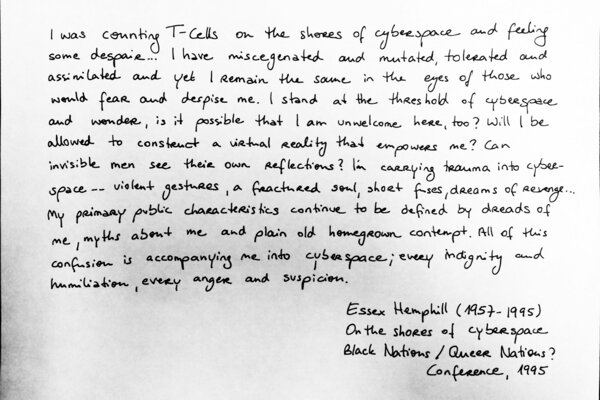 I was counting T-Cells on the shores of cyberspace and feeling
some despair... I have miscegenated and mutated, tolerated and
assinilated and yet I remain the same in the eyes of those who
would fear and despise me. I stand at the threshold of cyberspace
and wonder, is it possible that I am unwelcome here, too? Will I be
allowed to construct a virtual reality that empowers me? Can
invisible men see their own reflections? I'm carrying trauma into cyber-
space -- violent gestures, a fractured soul, short fuses, dreams of revenge...
My primary public characteristics continue to be defined by dreads of
me, myths about me and plain old homegrown contempt. All of this
confusion is accompanying me into cyberspace; every indignity and
humiliation, every anger and suspicion.
Essex Hemphill (1957-1995)
On the shores of cyberspace
Black Nations / Queer Nations?
Conference, 1995